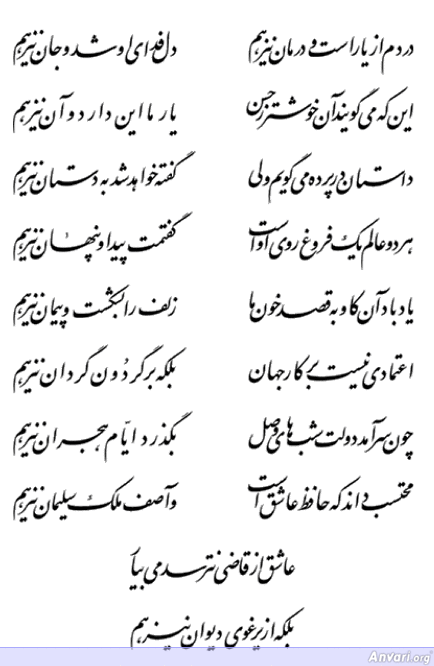 دردم از یار است و درمان نیز هم دل فدای او شد و جان نیز هم
این که می گویند آن خوشتر ز حسن یار ما این دارد و آن نیز هم
داستان در پرده می گویم ولی گفته خواهد شد به دستان نیز هم
هر دو عالم یک فروغ روی اوست گفتمت پیدا و پنهان نیز هم
یاد باد آن کاو به قصد خون ما زلف را بشکست و پیمان نیز هم
اعتمادی نیست بر کار جهان بلکه بر گردون گردان نیز هم
چون سرآمد دولت شب های وصل بگذرد ایّام هجران نیز هم
محتسب داند که حافظ عاشق است وآصف ملک سلیمان نیز هم
عاشق از قاضی نترسد می بیار
بلکه از یرغوی دیوان نیز هم
Anvari.org